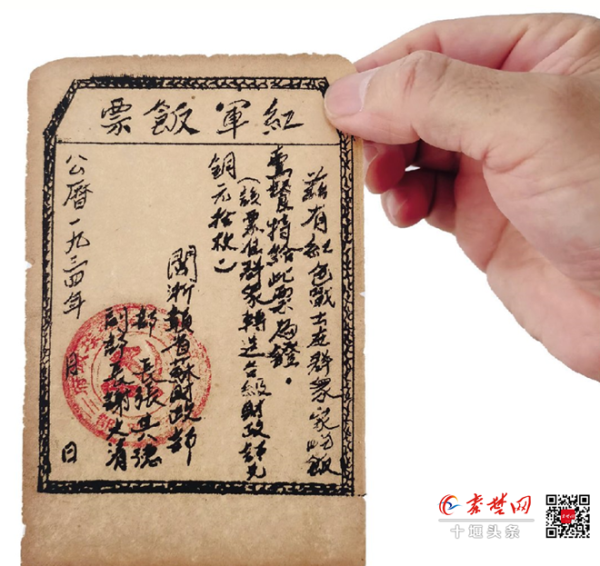 紅軍飯票
兹有紅色戰士在群眾家吃飯
壹餐特給此票為證。
(該票群眾轉送各級財政部兑
銅元拾枚)
閩浙贛省蘇財政部
部長張其德
副部長謝文清
公曆一九三四年 月 日
秦楚网
十堰头条